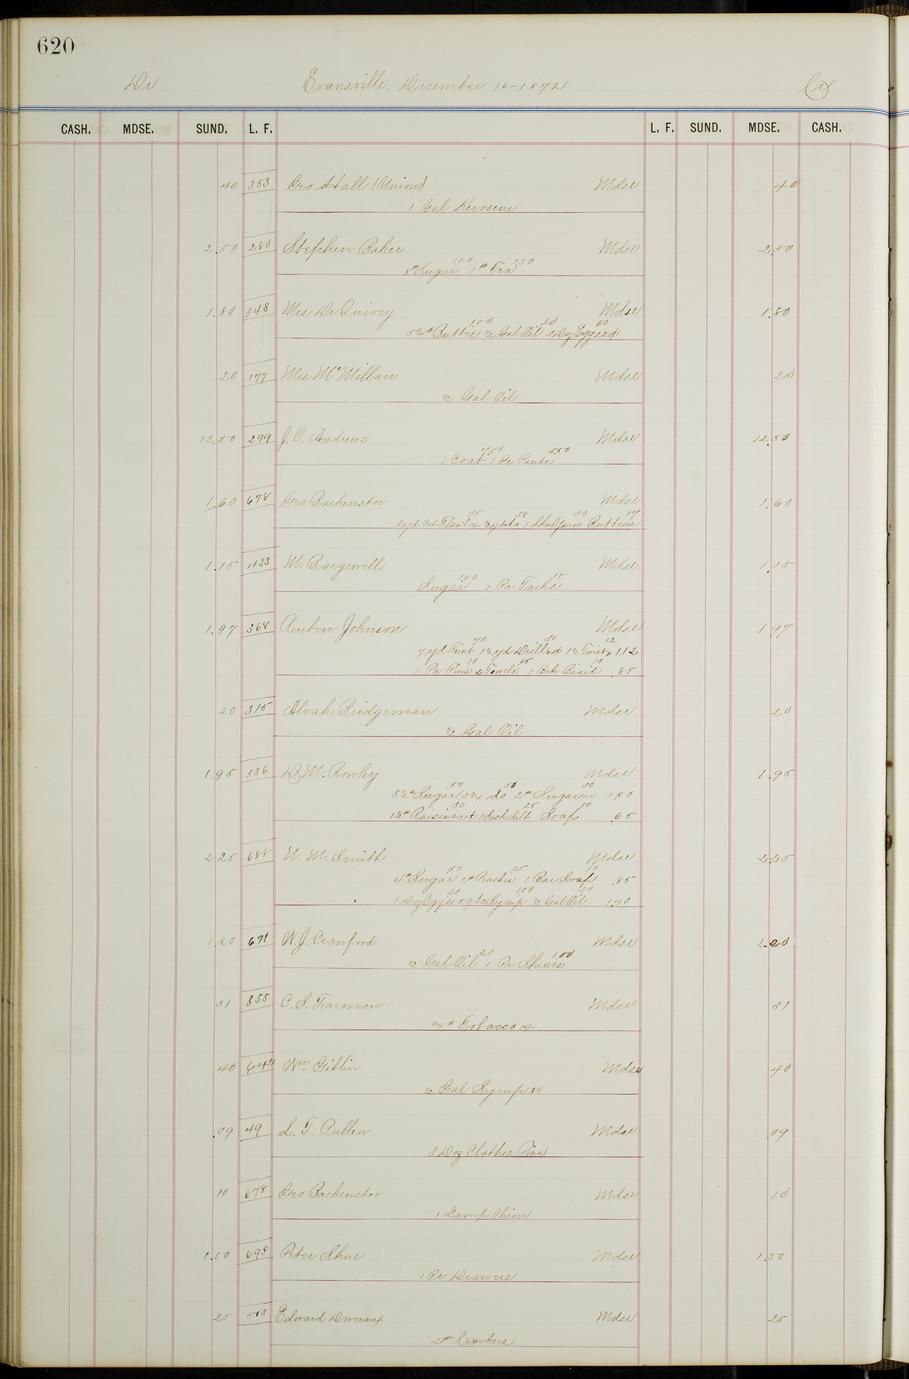 620
Dr Evansville, December 16 - 1872 Cr
CASH. MDSE. SUND. L. F. L. F. SUND. MDSE. CASH.
40 353 Geo Hall (Union) Mdse 40
1 Gal Kerosene
2.50 280 Stephen Baker Mdse 2.50
8# Sugar 1.00 1# Tea 1.50
1.80 348 Mrs De Quivey Mdse 1.80
Butter 1.00 ½ Gal Oil 20 Doz Eggs 60
20 177 Mrs McMillan Mdse 20
½ Gal Oil
12.50 299 J. P. Andrews Mdse 12.50
1 Coat 7.00 1 Pr Pants 5.50
1.60 678 Geo Backenstoe Mdse 1.60
Buttons 17
1.15 433 M. Mdse 1.15
Sugar 1.00 1 Pa Tacks 15
1.97 368 Reuben Johnson Mdse 1 97
7 yd Print 70 12 1.12
1 Pa Pins 10 2 Towels 65 1 Braid 10 .85
20 315 Alvah Bridgeman Mdse 20
½ Gal Oil
1.95 536 D. M. Rowley Mdse 1.95
Sugar 50 do 50 Sugar 1.30
Raisins 30 1 Sack Salt 25 Soap 10 .65
2 25 688 W. M. Smith Mdse 2.25
4# Sugar 50 Peaches 25 1 Bar Soap 10 .85
1 Doz Eggs 20 Syrup 1.00 ½ Gal Oil 20 1.40
1.20 671 W. J. Cranford Mdse 1.20
½ Gal Oil 20 1 Pr Shears 1.00
31 355 C. S. Mdse 31
Tobacco
40 642 Wm Giblin Mdse 40
½ Gal Syrup 80
.09 49 L. T. Pullen Mdse 09
3 Doz Clothes Pins
10 678 Geo Backenstoe Mdse 10
1 Lamp Chim
1.50 693 Peter Shue Mdse 1.50
1 Pr Drawers
25 513 Edward Devereaux Mdse 25
2# Crackers